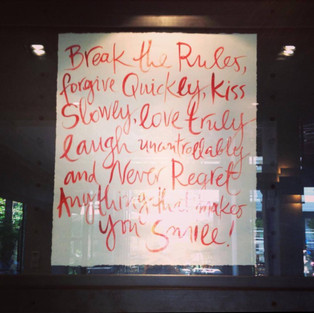 Break the Rules,
forgive Quickly, Kiss
Slowly, love truly
laugh uncontrollably
and Never Regret
Anything that makes
you Smile!